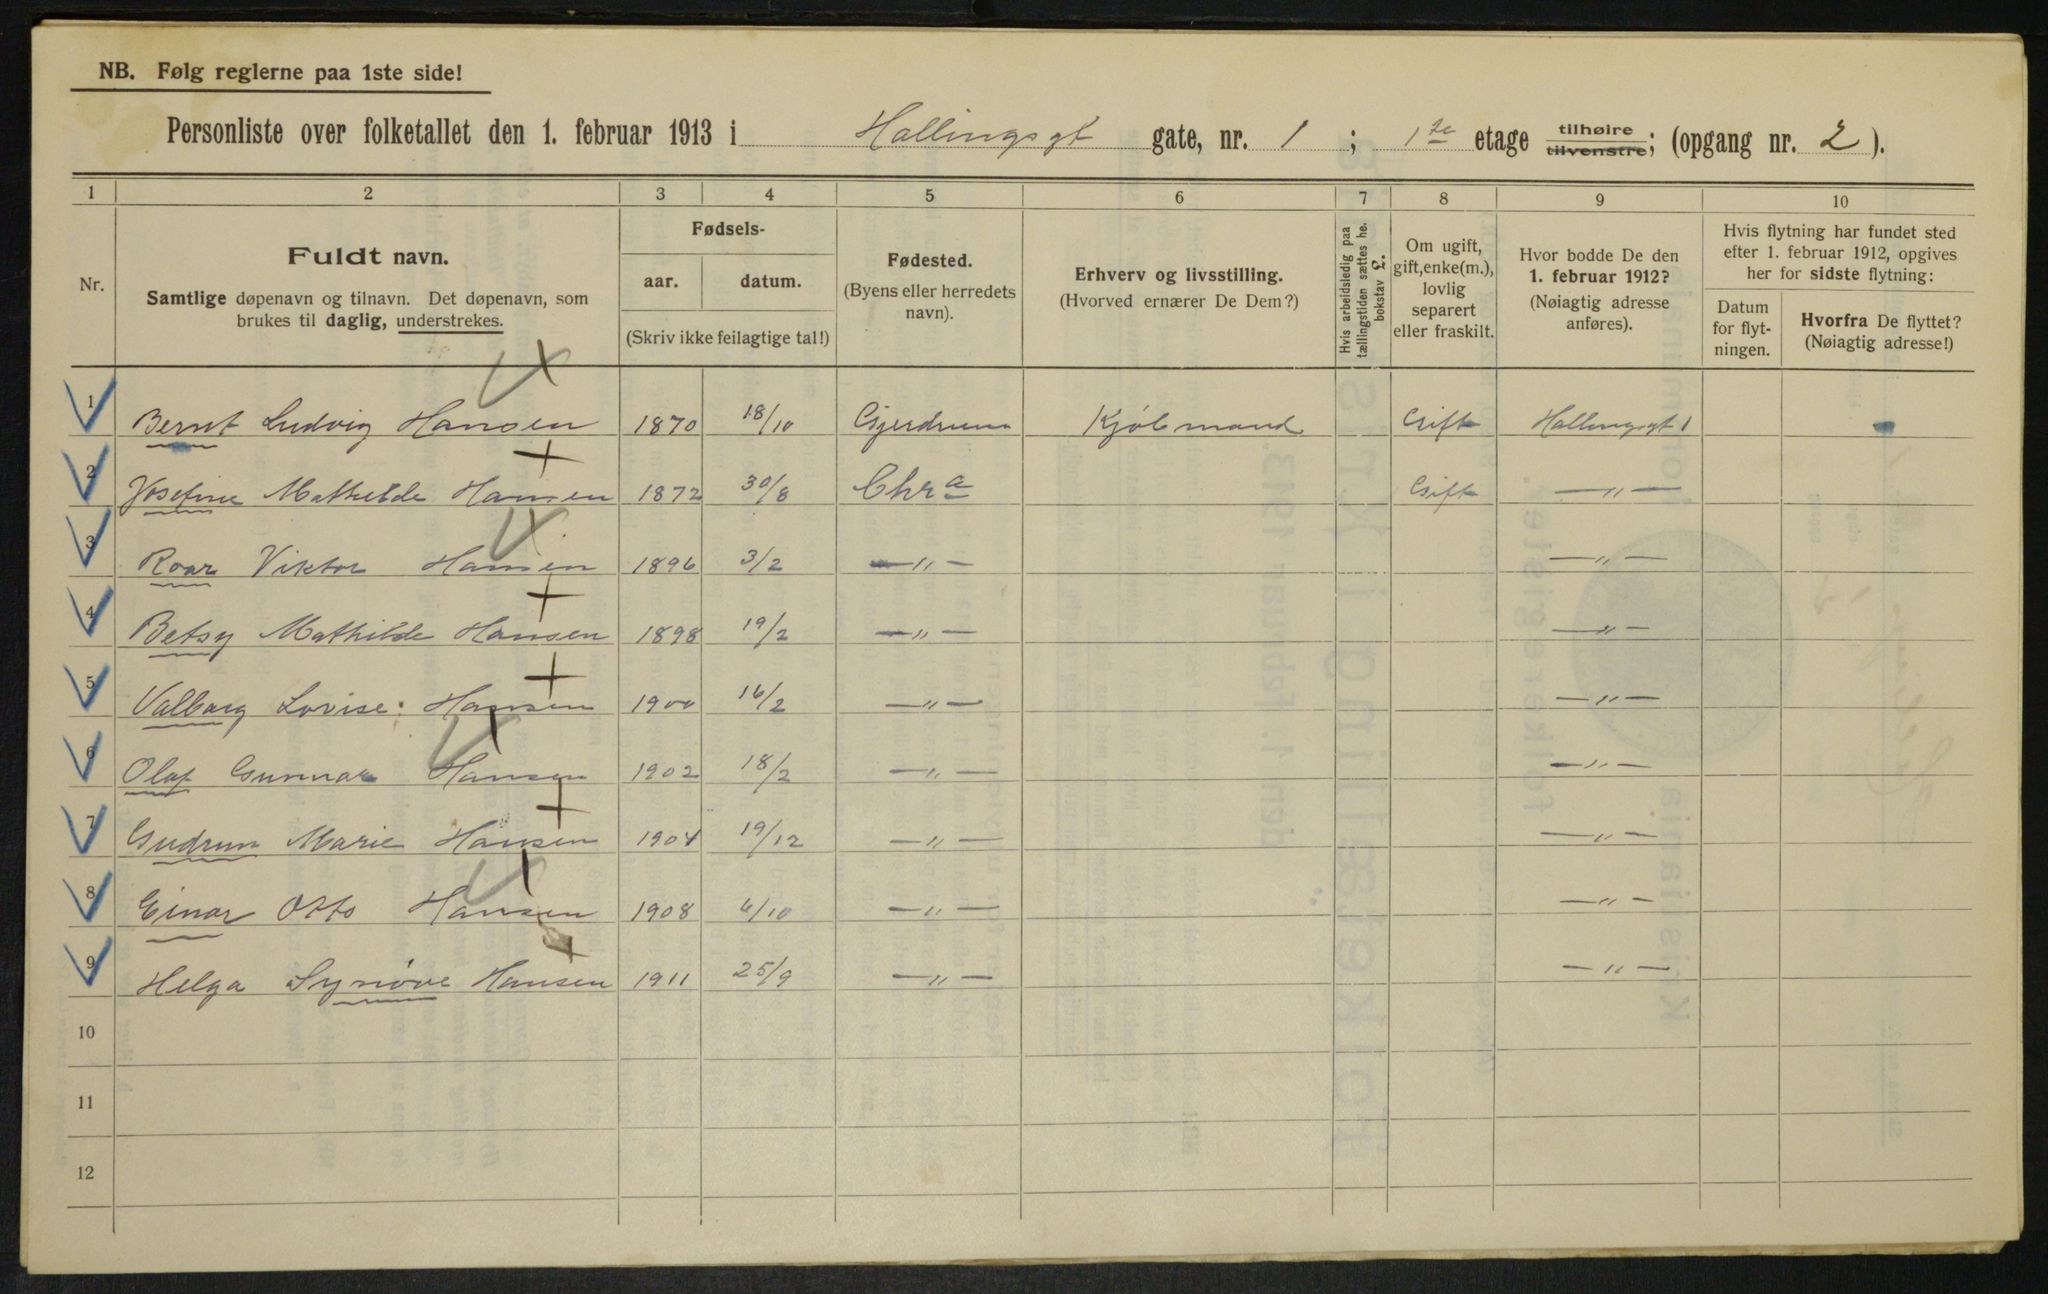 NB. Følg reglerne paa 1ste side!
Personliste over folketallet den 1. februar 1913 i Hallingsgt gate, nr. 1; 1ste etage tilhøire tilvenstre; (opgang nr. 2).
1 2 3 4 5 6 7 8 9 10
Nr.
Fuldt navn.
Samtlige døpenavn og tilnavn. Det døpenavn, som
brukes til daglig, understrekes.
Fødsels-
aar. datum.
(Skriv ikke feilagtige tal!)
Fødested.
(Byens eller herredets
navn).
Erhverv og livsstilling.
(Hvorved ernærer De Dem?)
Hvis arbeidsledig paa
tællingstiden sættes he.
bokstav L.
Om ugift,
gift, enke(m.),
lovlig
separert
eller fraskilt.
Hvor bodde De den
1. februar 1912?
(Nøiagtig adresse
anføres).
Hvis flytning har fundet sted
efter 1. februar 1912, opgives
her for sidste flytning:
Datum
for flyt-
ningen.
Hvorfra De flyttet?
(Nøiagtig adresse!)
1 Bernt Ludvig Hansen 1870 18/10 Gjerdrum Kjøbmand Gift Hallingsgt 1
2 Josefine Mathilde Hansen 1872 30/8 Chra Gift — „ —
3 Roar Viktor Hansen 1896 3/2 — „ — — „ —
4 Betsy Mathilde Hansen 1898 19/2 — „ — — „ —
5 Valborg Lovise Hansen 1900 16/2 — „ — — „ —
6 Olaf Gunnar Hansen 1902 18/2 — „ — — „ —
7 Gudrun Marie Hansen 1904 19/12 — „ — — „ —
8 Einar Otto Hansen 1908 6/10 — „ — — „ —
9 Helga Synøve Hansen 1911 25/9 — „ — — „ —
10
11
12